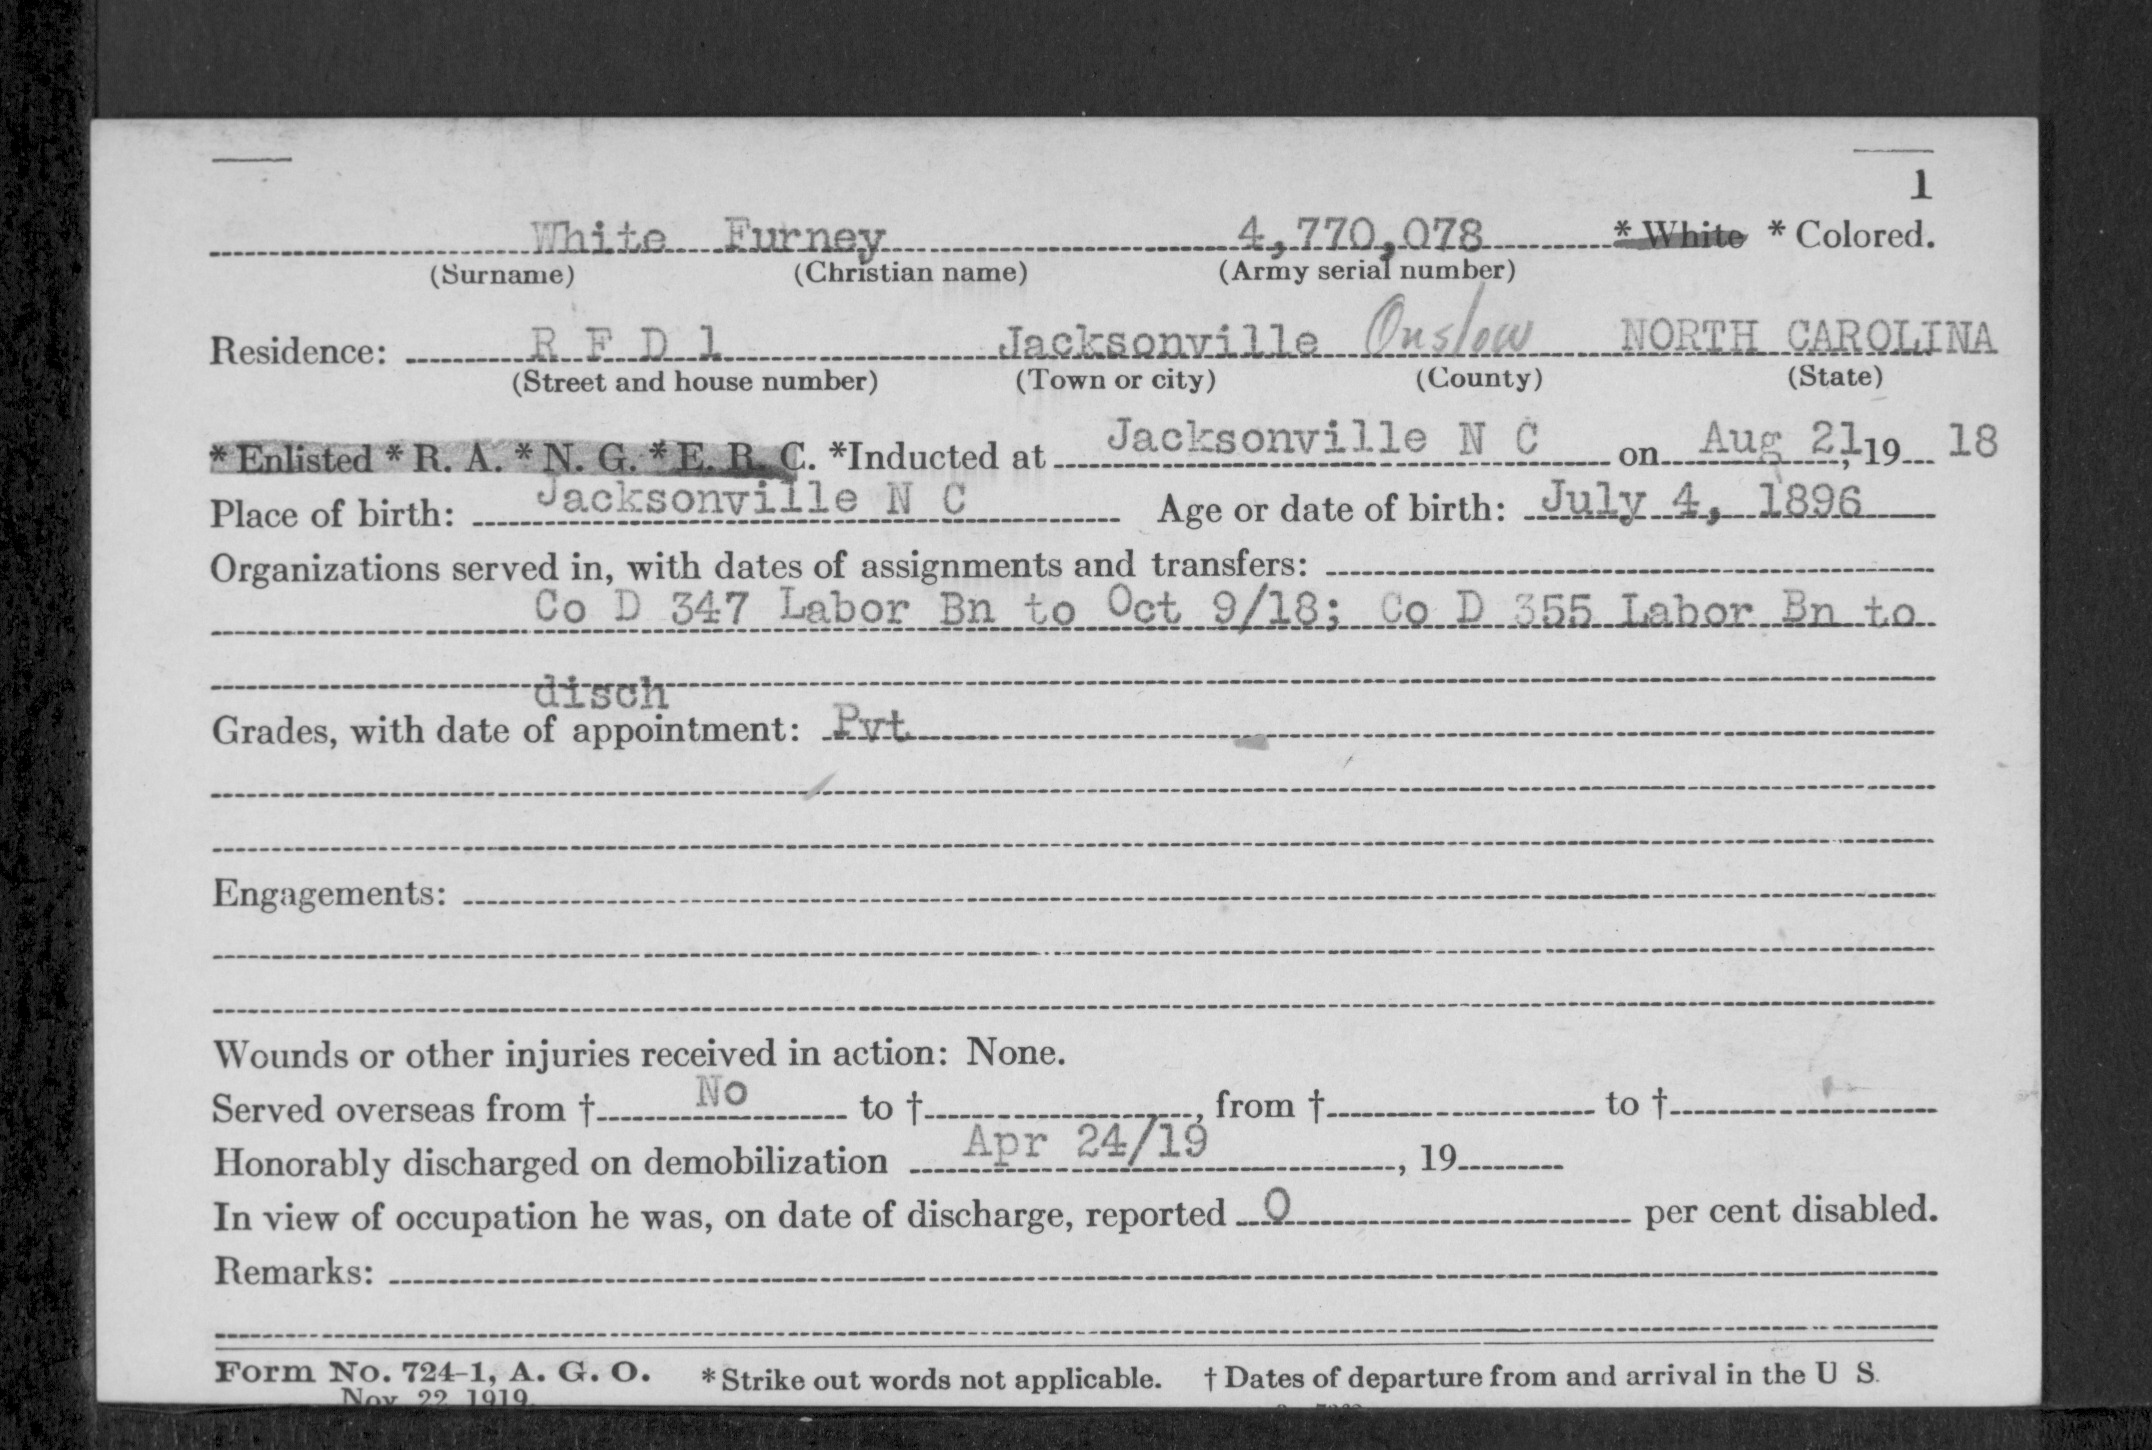 1
White Furney 4,770,078 * White * Colored.
(Surname) (Christian name) (Army serial number)
Residence: R F D 1 Jacksonville Onslow NORTH CAROLINA
(Street and house number) (Town or city) (County) (State)
* Enlisted * R. A. * N. G. * E. R. C. *Inducted at Jacksonville N C on Aug 21, 19 18
Place of birth: Jacksonville N C Age or date of birth: July 4, 1896
Organizations served in, with dates of assignments and transfers:
Co D 347 Labor Bn to Oct 9/18; Co D 355 Labor Bn to
disch
Grades, with date of appointment: Pvt
Engagements:
Wounds or other injuries received in action: None.
Served overseas from † No to †, from † to †
Honorably discharged on demobilization Apr 24/19, 19
In view of occupation he was, on date of discharge, reported 0 per cent disabled.
Remarks:
Form No. 724-1, A. G. O. * Strike out words not applicable. † Dates of departure from and arrival in the U S.
Nov. 22, 1919.